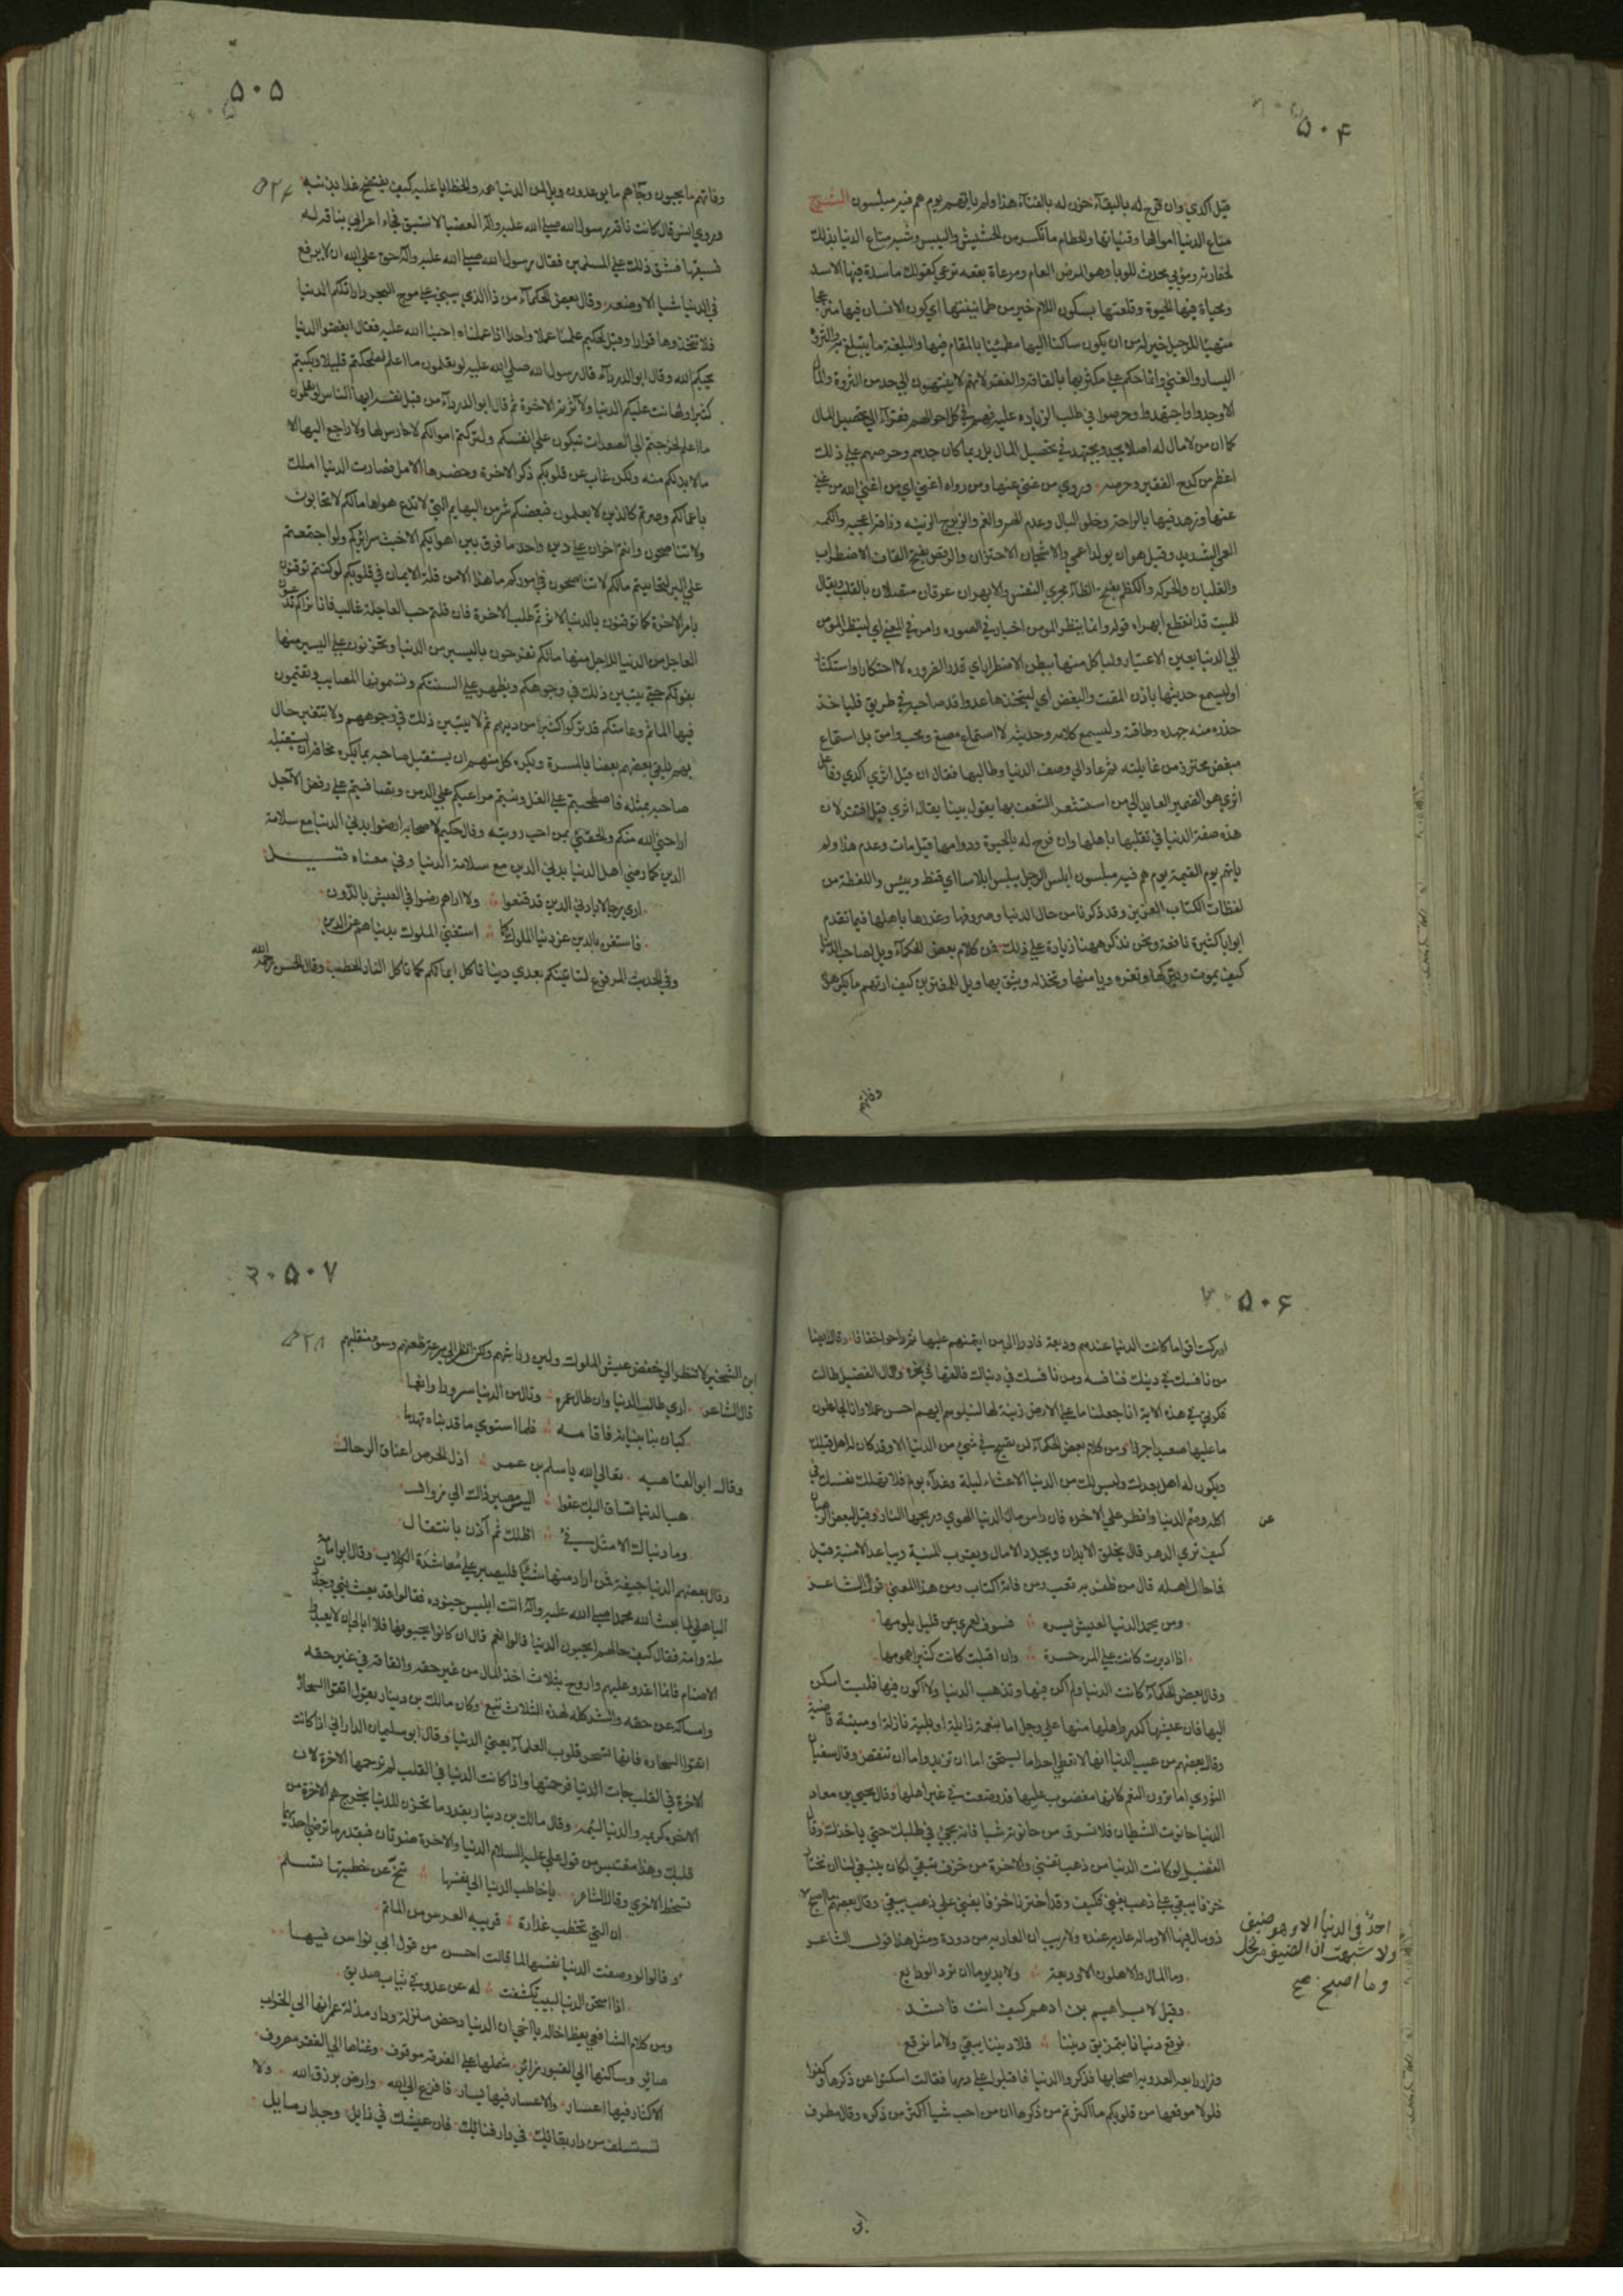 ۵۰۴
قيل اكدي وان فرح له بالبقاء حزن له بالفناء هذا ولم ياتهم يوم هم فيه مبلسون الشرح
متاع الدنيا اموالها وقنياتها والحطام ما تكسر من الحشيش واليبس وشبه متاع الدنيا بذلك
لحقارته وموبي محدث للوباء وهو المرض العام ومرعاة بقعة ترعي كقولك ماسدة فيها الاسد
ومحياة فيها الحيوة وقلعتها بسكون اللام خير من طمانينتها اي كون الانسان فيها منزعجا
متهيئا للرحيل خير له من ان يكون ساكنا اليها مطمئنا بالمقام فيها والبلغة ما يتبلغ به والثروة
اليسار والغني وانما حكم علي مكثريها بالفاقة والفقر لانهم لا ينتهون الي حد من الثروة والمال
الا وجدوا واجتهدوا وحرصوا في طلب الزيادة عليه فهم في كل احوالهم فقراء الي تحصيل المال
كما ان من لا مال له اصلا يجد ويجتهد في تحصيل المال بل ربما كان جدهم وحرصهم علي ذلك
اعظم من كدح الفقير وحرصه وروي من غني عنها ومن رواه اغني اي من اغني الله من غني
عنها وزهد فيها بالراحة وخلو البال وعدم الهم والغم والزبرج الزينه وراقه اعجبه والكمه
العمي الشديد وقيل هو ان يولد اعمي والاشجان الاحزان والرقص بفتح القاف الاضطراب
والغليان والحركه والكظم بفتح الظاء مجري النفس والابهران عرقان متصلان بالقلب ويقال
للميت قد انقطع ابهراه قوله وانما ينظر المومن اخبار في الصورة وامر في المعني اي لينظر المومن
الي الدنيا بعين الاعتبار ولياكل منها ببطن الاضطرار اي قدر الضروره لا احتكارا واستكثارا
وليسمع حديثها باذن المقت والبغض اي ليتخذها عدوا قد صاحبه في طريق فلياخذ
حذره منه جهده وطاقته وليسمع كلامه وحديثه لا استماع مصغ ومحب وامق بل استماع
مبغض محترز من غايلته ثم عاد الي وصف الدنيا وطالبها فقال ان قيل اثري اكدي وفاعل
اثري هو الضمير العايد الي من استشعر الشعف بها يقول بينا يقال اثري قيل افتقر لان
هذه صفة الدنيا في تقلبها باهلها وان فرح له بالحيوة ودوامها قيل مات وعدم هذا ولم
ياتهم يوم القيمة يوم هم فيه مبلسون ابلس الرجل يبلس ابلاسا اي قنط ويئس واللفظة من
لفظات الكتاب العزيز وقد ذكرنا من حال الدنيا وصروفها وغدرها باهلها فيما تقدم
ابوابا كثيرة نافعة ونحن نذكر ههنا زيادة علي ذلك فمن كلام بعض الحكماء ويل لصاحب الدنيا
كيف يموت ويتركها وتغره ويامنها وتخذله ويثق بها ويل للمغترين كيف ارتهم ما يكرهون
وفاتهم
۵۰۵
وفاتهم ما يحبون وجاءهم ما يوعدون ويل لمن الدنيا همه والخطايا عليه كيف يفتضح غدا بذنبه
وروي انس قال كانت ناقة رسول الله صلي الله عليه واله العضبا لا تسبق فجاء اعرابي بناقة له
فسبقها فشق ذلك علي المسلمين فقال رسول الله صلي الله عليه واله حق علي الله ان لا يرفع
في الدنيا شيا الا وضعه وقال بعض الحكماء من ذا الذي يبني علي موج البحر دارا تلكم الدنيا
فلا تتخذوها قرارا وقيل لحكيم علمنا عملا واحدا اذا عملناه احبنا الله عليه فقال ابغضوا الدنيا
يحبكم الله وقال ابو الدرداء قال رسول الله صلي الله عليه لو تعلمون ما اعلم لضحكتم قليلا ولبكيتم
كثيرا ولهانت عليكم الدنيا ولاثرتم الاخرة ثم قال ابو الدرداء من قبل نفسه ايها الناس لو تعلمون
ما اعلم لخرجتم الي الصعدات تبكون علي انفسكم ولتركتم اموالكم لا حارس لها ولا راجع اليها الا
ما لا بد لكم منه ولكن غاب عن قلوبكم ذكر الاخرة وحضرها الامل فصارت الدنيا املك
باعمالكم وصرتم كالذين لا يعلمون فبعضكم شر من البهايم التي لا تدع هواها ما لكم لا تحابون
ولا تناصحون وانتم اخوان علي دين واحد ما فرق بين اهوايكم الا خبث سرائركم ولو اجتمعتم
علي البر لتحاببتم ما لكم لا تناصحون في اموركم ما هذا الا من قلة الايمان في قلوبكم لو كنتم توقنون
بامر الاخرة كما توقنون بالدنيا لاثرتم طلب الاخرة فان قلتم حب العاجلة غالب فانا نراكم تدعون
العاجل من الدنيا للاجل منها ما لكم تفرحون باليسير من الدنيا وتحزنون علي اليسير منها
يفوتكم حتي يتبين ذلك في وجوهكم ويظهر علي السنتكم وتسمونها المصايب وتقيمون
فيها الماتم وعامتكم قد تركوا كثيرا من دينهم ثم لا يتبين ذلك في وجوههم ولا يتغير حال
بهم يلقي بعضهم بعضا بالمسرة ويكره كل منهم ان يستقبل صاحبه بما يكره مخافة ان يستقبله
صاحبه بمثله فاصطحبتم علي الغل ونبتم مراعيكم علي الدمن وتصافيتم علي رفض الاجل
اراحني الله منكم والحقني بمن احب رويته وقال حكيم لاصحابه ارضوا بدني الدنيا مع سلامة
الدين كما رضي اهل الدنيا بدني الدين مع سلامة الدنيا وفي معناه قيل
اري رجالا بادني الدين قد قنعوا ولا اراهم رضوا في العيش بالدون
فاستغن بالدين عن دنيا الملوك كما استغني الملوك بدنياهم عن الدين
وفي الحديث المرفوع لتاتينكم بعدي دنيا تاكل ايمانكم كما تاكل النار الحطب وقال الحسن رحمه الله
۵۰۶
ادركت اقواما كانت الدنيا عندهم وديعة فادوها الي من ايتمنهم عليها ثم راحوا خفافا وقال ايضا
من نافسك في دينك فنافسه ومن نافسك في دنياك فالقها في نحره وقال الفضيل طالت
فكرتي في هذه الاية انا جعلنا ما علي الارض زينة لها لنبلوهم ايهم احسن عملا وانا لجاعلون
ما عليها صعيدا جرزا ومن كلام بعض الحكماء لن تصبح في شي من الدنيا الا وقد كان له اهل قبلك
ويكون له اهل بعدك وليس لك من الدنيا الا عشاء ليلة وغداء يوم فلا تهلك نفسك في
اكله وصم الدنيا وافطر علي الاخره فان راس مال الدنيا الهوي وربحها النار وقيل لبعض الرهبان
كيف تري الدهر قال يخلق الابدان ويجدد الامال ويقرب المنية ويباعد الامنية قيل
فما حال اهله قال من ظفر به تعب ومن فاته اكتاب ومن هذا المعني قول الشاعر
ومن يحمد الدنيا لعيش يسره فسوف لعمري عن قليل يلومها
اذا ادبرت كانت علي المرء حسرة وان اقبلت كانت كثيرا همومها
وقال بعض الحكماء كانت الدنيا ولم اكن فيها وتذهب الدنيا ولا اكون فيها فلست اسكن
اليها فان عيشها نكد وصفوها كدر واهلها منها علي وجل اما بنعمة زايلة او بلية نازلة او ميتة قاضية
وقال بعضهم من عيب الدنيا انها لا تعطي احدا ما يستحق اما ان تزيد واما ان تنقص وقال سفيان
الثوري اما ترون النعم كانها مغضوب عليها قد وضعت في غير اهلها وقال يحيي بن معاذ
الدنيا حانوت الشيطان فلا تسرق من حانوته شيا فانه يجيء في طلبك حتي ياخذك وقال
الفضيل لو كانت الدنيا من ذهب يفني والاخرة من خزف يبقي لكان ينبغي لنا ان نختار
خزفا يبقي علي ذهب يفني فكيف وقد اخترنا خزفا يفني علي ذهب يبقي وقال بعضهم ما اصبح
ذو مال فيها الا وماله عارية عنده ولا ريب ان العارية مردودة ومثل هذا قول الشاعر
وما المال والاهلون الا وديعة ولا بد يوما ان ترد الودايع
وقيل لابراهيم بن ادهم كيف انت فانشد
نرقع دنيانا بتمزيق ديننا فلا ديننا يبقي ولا ما نرقع
وزار رابعة العدويه اصحابها فذكروا الدنيا فاقبلوا علي ذمها فقالت اسكتوا عن ذكرها وكفوا
فلولا موقعها من قلوبكم ما اكثرتم من ذكرها ان من احب شيا اكثر من ذكره وقال مطرف
عن
احد في الدنيا الا وهو ضيف
ولا شبهت ان الضيف مرتحل
وما اصبح صح
۵۰۷
ابن الشخير لا تنظر الي خفض عيش الملوك ولين رياشهم ولكن انظر الي سرعة ظعنهم وسوء منقلبهم
قال الشاعر اري طالب الدنيا وان طال عمره ونال من الدنيا سرورا وانعما
كبان بنا بنيانه فاقامه فلما استوي ما قد بناه تهدما
وقال ابو العتاهيه تعالي الله يا سلم بن عمرو اذل الحرص اعناق الرجال
هب الدنيا تساق اليك عفوا اليس مصير ذاك الي زوال
وما دنياك الا مثل فيء اظلك ثم آذن بانتقال
وقال بعضهم الدنيا جيفة فمن اراد منها شيئا فليصبر علي معاشرة الكلاب وقال ابو امامة
الباهلي لما بعث الله محمدا صلي الله عليه واله اتت ابليس جنوده فقالوا قد بعث نبي وجدت
ملة وامة فقال كيف حالهم ايحبون الدنيا قالوا نعم قال ان كانوا يحبونها فلا ابالي ان لا يعبدوا
الاصنام فانما اغدو عليهم واروح بثلاث اخذ المال من غير حقه وانفاقه في غير حقه
وامساكه عن حقه والشر كله لهذه الثلاث تبع وكان مالك بن دينار يقول اتقوا السحارة
اتقوا السحاره فانها تسحر قلوب العلماء يعني الدنيا وقال ابو سليمان الداراني اذا كانت
الاخرة في القلب جات الدنيا فزحمتها واذا كانت الدنيا في القلب لم تزحمها الاخرة لان
الاخره كريمه والدنيا لئيمه وقال مالك بن دينار بقدر ما تحزن للدنيا يخرج هم الاخرة من
قلبك وهذا مقتبس من قول علي عليه السلام الدنيا والاخرة ضرتان فبقدر ما ترضي احداهما
تسخط الاخري وقال الشاعر يا خاطب الدنيا الي نفسها تنح عن خطبتها تسلم
ان التي تخطب غدارة قريبه العرس من الماتم
وقالوا لو وصفت الدنيا نفسها لما قالت احسن من قول ابي نواس فيها
اذا امتحن الدنيا لبيب تكشفت له عن عدو في ثياب صديق
ومن كلام الشافعي يعظ اخا له يا اخي ان الدنيا دحض منزلة ودار مذلة عمرانها الي الخراب
صائر وساكنها الي القبور زائر شملها علي الفرقة موقوف وغناها الي الفقر مصروف
الاكثار فيها اعسار والاعسار فيها يسار فافزع الي الله وارض برزق الله ولا
تستسلف من دار بقائك في دار فنائك فان عيشك فيء زايل وجدار مايل